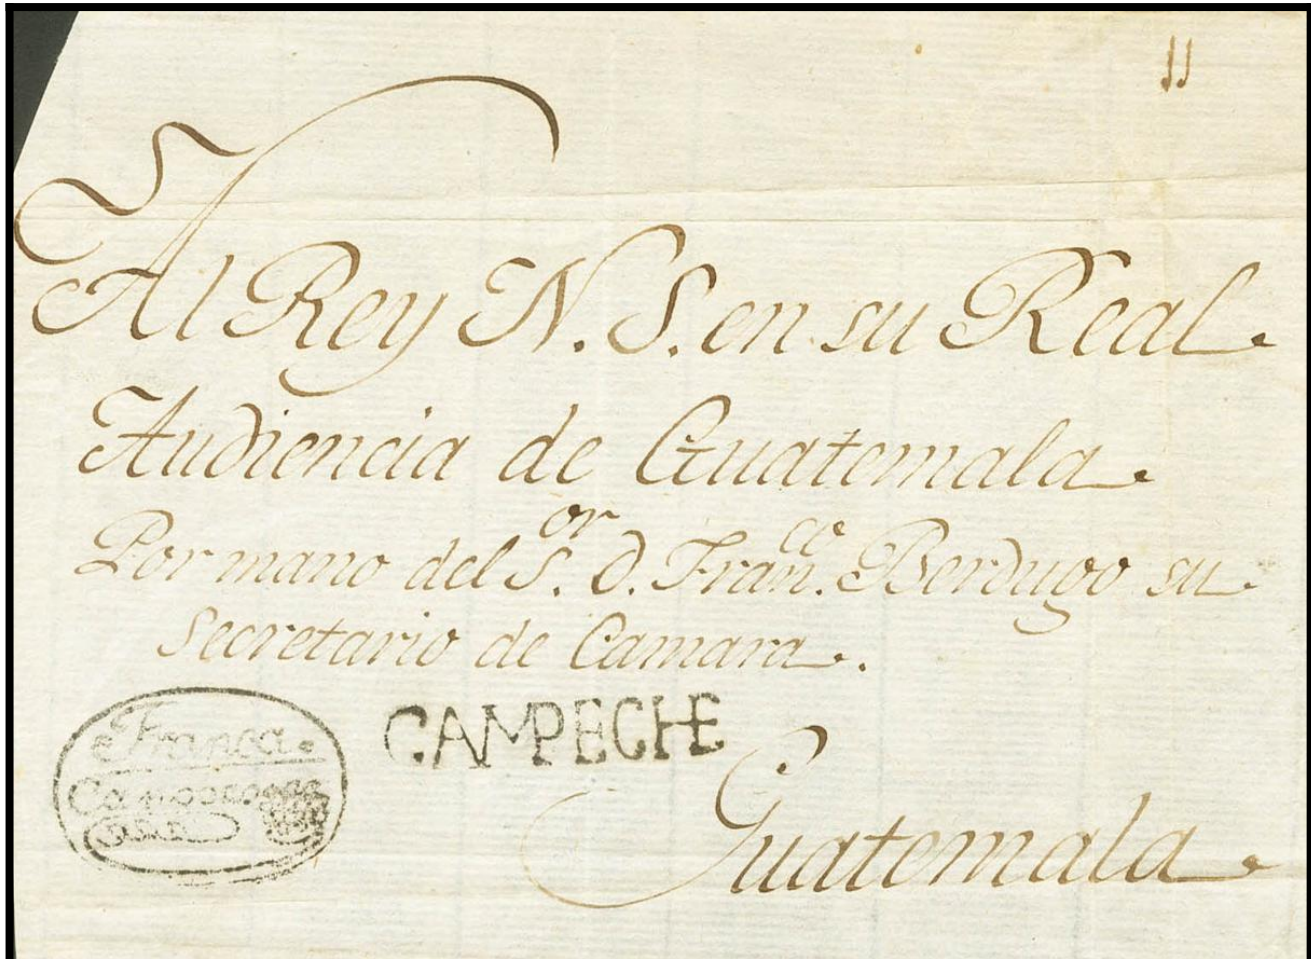 11
Al Rey N. S. en su Real
Audiencia de Guatemala
Por mano del S.or D. Fran.co Berdugo su
Secretario de Camara.
Franca.
CAMPECHE
Guatemala